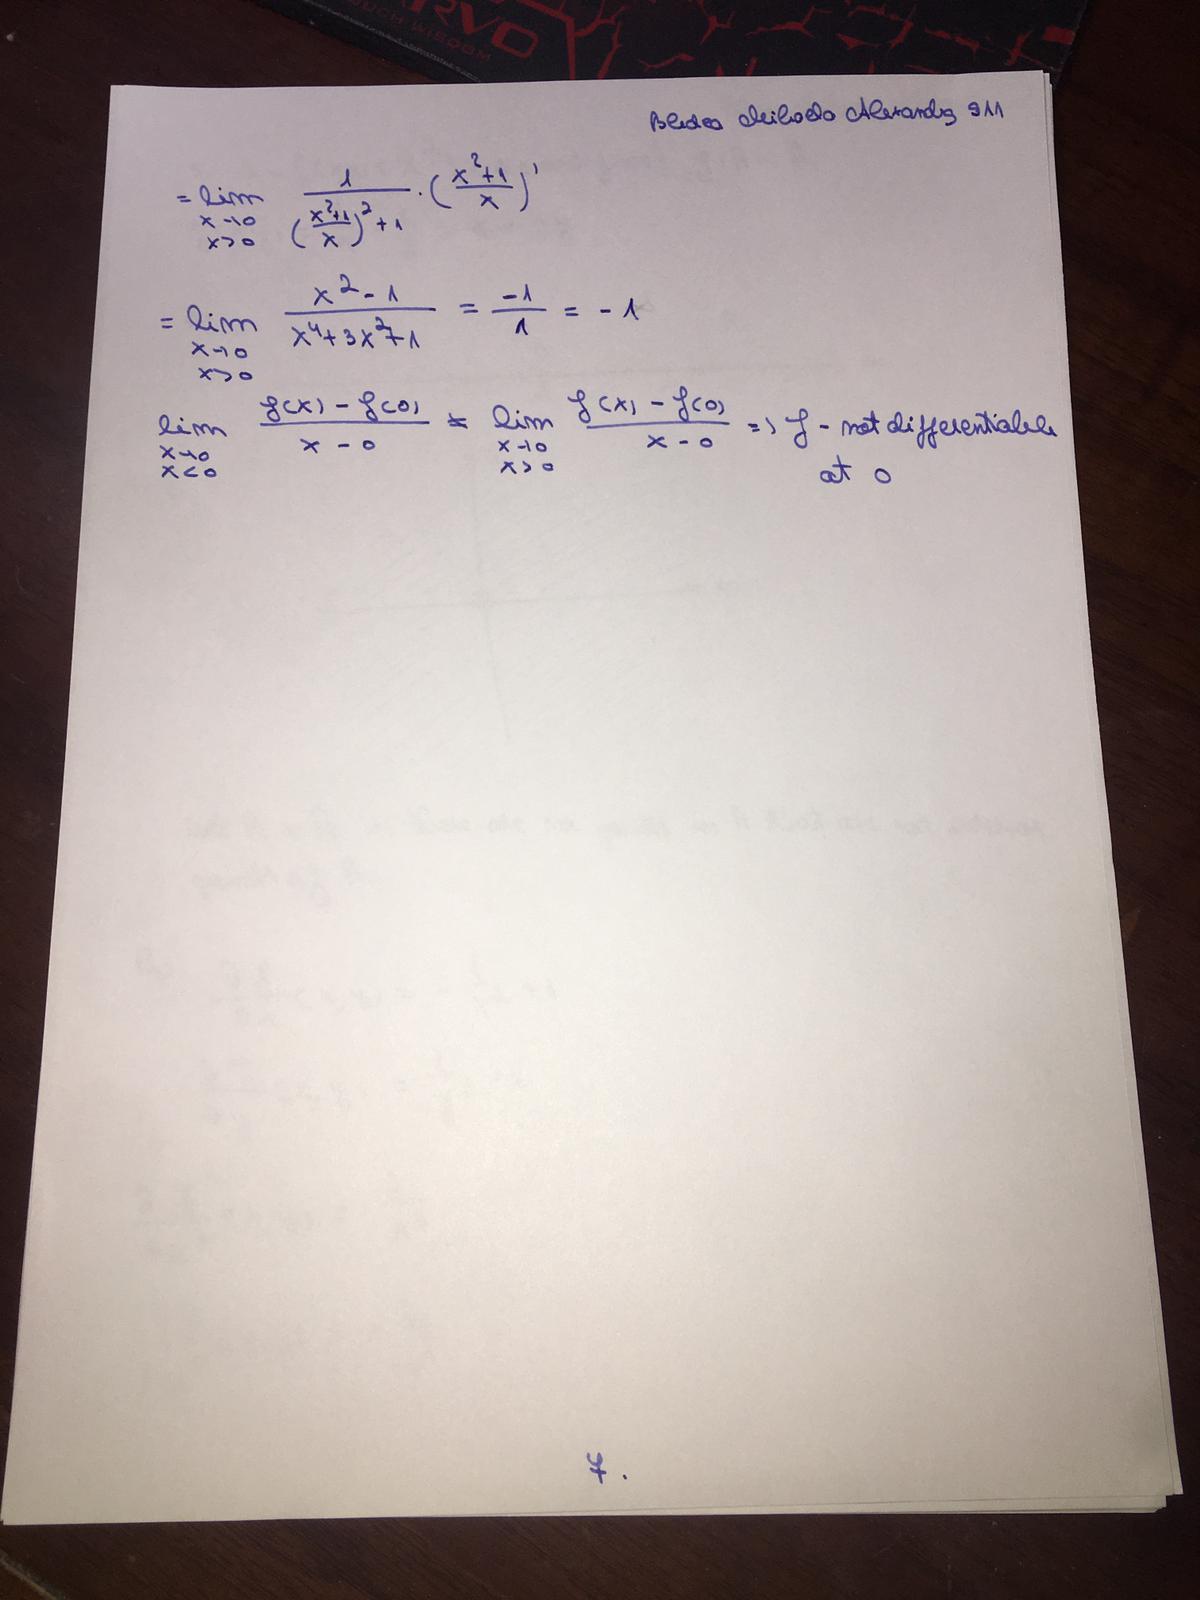 RVO
OUCH WISDOM
Alexandra 911
= lim x→0 x>0 1/((x²+1)/x)²+1 · ((x²+1)/x)'
= lim x→0 x>0 (x²-1)/(x⁴+3x²+1) = -1/1 = -1
lim x→0 x<0 (f(x) - f(0))/(x - 0) ≠ lim x→0 x>0 (f(x) - f(0))/(x - 0) => f - not differentiable
at 0
7.